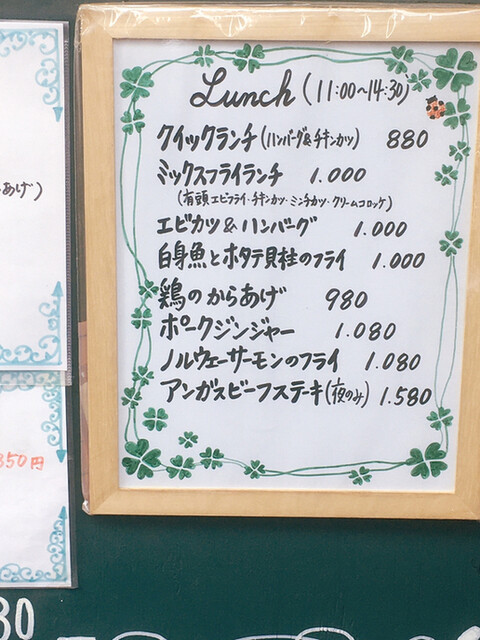 Lunch (11:00~14:30)
クイックランチ(ハンバーグ&チキンカツ) 880
ミックスフライランチ 1.000
(有頭エビフライ・チキンカツ・ミンチカツ・クリームコロッケ)
エビカツ&ハンバーグ 1.000
白身魚とホタテ貝柱のフライ 1.000
鶏のからあげ 980
ポークジンジャー 1.080
ノルウェーサーモンのフライ 1.080
アンガスビーフステーキ(夜のみ) 1.580
あげ)
350円
30